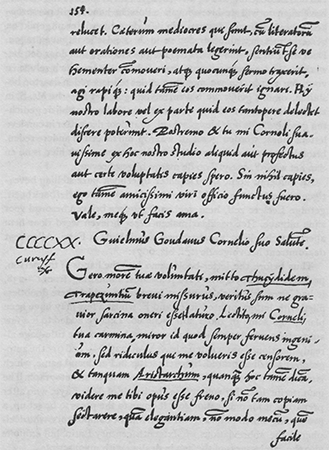 159.
relucet. Cæterum mediocres que sunt, cũ literatorũ
aut orationes aut poemata legerint, sentiunt se ve
hementer comoveri, atq quocũq sermo traxerit,
agi rapiq: quid tamẽ eos commoverit ignari. Hi
nostro labore vel ex parte quid eos tantopere delectet
discere poterunt. Postremo & tu mi Corneli sua
vissime ex hoc nostro studio aliquid aut profectus
aut certe voluptatis capies spero. Sin nihil capies,
ego tamẽ amicissimi viri officio functus fuero.
Vale, meq ut facis ama.
CCCCXX. Guielmus Goudanus Cornelio suo Salutẽ.
Gero morẽ tuæ voluntati, mitto Thucydidem,
Trapezuntiũ brevi missurus, veritus sum ne gra
vior sarcina oneri esset latico. Lectito, mi Corneli
tua carmina, miror id quod semper fervens ingeni
um, sed ridiculus que me volueris esse censorem,
& tanquam Aristarchum, quanq hoc tamẽ
videre me tibi opus esse freno, si nõ tam copiam
sectarere, quã elegantiam, nõ modo mecũ, que
facile